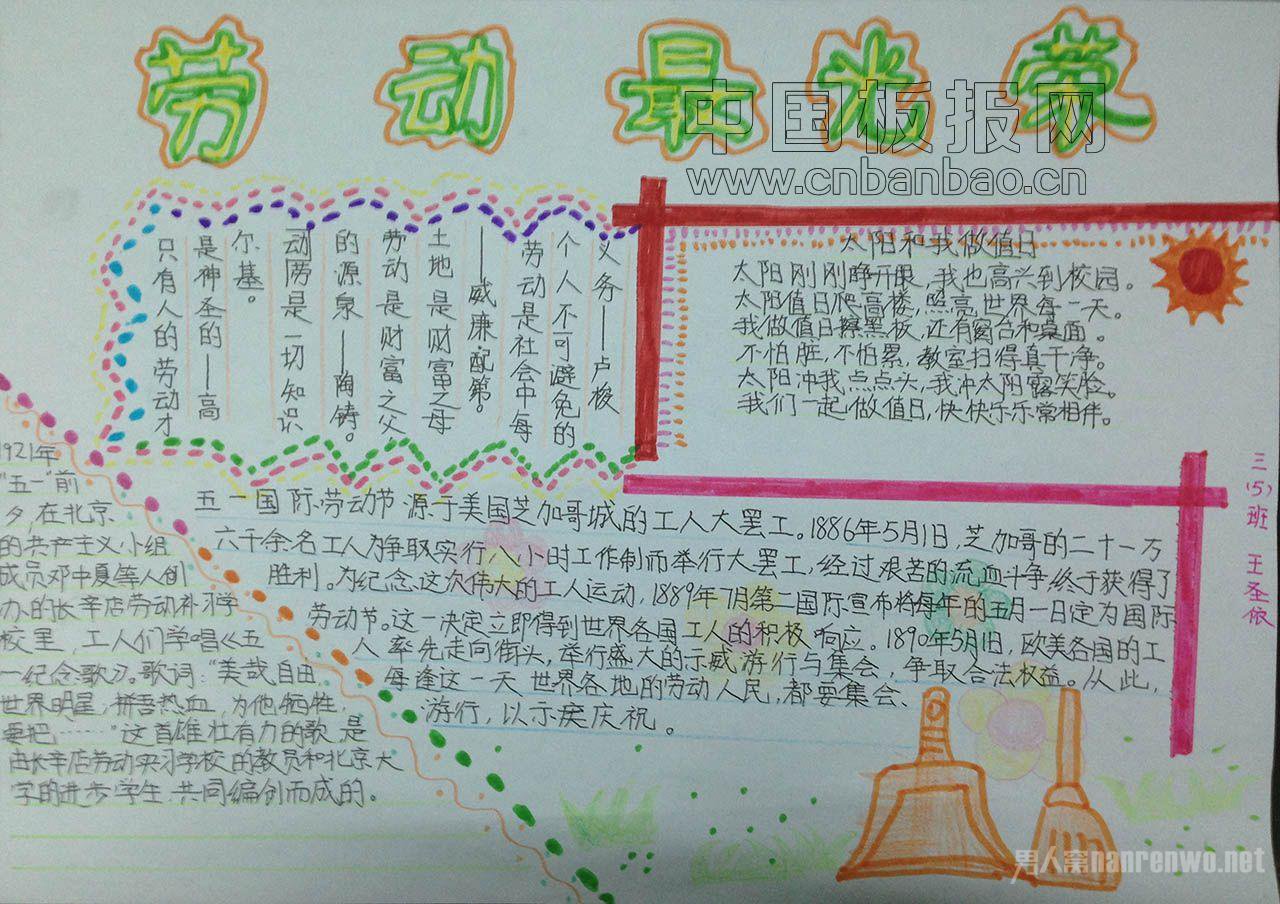 劳动最光荣
中国板报网
www.cnbanbao.cn
只有人的劳动才
是神圣的——高
尔基。
动劳是一切知识
的源泉——陶铸。
劳动是财富之父
土地是财富之母
——威廉配第。
劳动是社会中每
个人不可避免的
义务——卢梭
太阳和我做值日
太阳刚刚睁开眼,我也高兴到校园。
太阳值日爬高楼,照亮世界每一天。
我做值日擦黑板,还有窗台和桌面。
不怕脏,不怕累,教室扫得真干净。
太阳冲我点点头,我冲太阳露笑脸。
我们一起做值日,快快乐乐常相伴。
三(5)班 王圣依
1921年
“五一”前
夕,在北京
的共产主义小组
成员邓中夏等人创
办的长辛店劳动补习学
校里,工人们学唱《五
一纪念歌》。歌词:“美哉自由,
世界明星,拼吾热血,为他牺牲,
要把……”这首雄壮有力的歌是
由长辛店劳动实习学校的教员和北京大
学的进步学生共同编创而成的。
五一国际劳动节源于美国芝加哥城的工人大罢工。1886年5月1日,芝加哥的二十一万
六千余名工人为争取实行八小时工作制而举行大罢工,经过艰苦的流血斗争终于获得了
胜利。为纪念这次伟大的工人运动,1889年7月第二国际宣布将每年的五月一日定为国际
劳动节。这一决定立即得到世界各国工人的积极响应。1890年5月1日,欧美各国的工
人率先走向街头,举行盛大的示威游行与集会,争取合法权益。从此,
每逢这一天世界各地的劳动人民,都要集会、
游行,以示庆祝。
男人窝nanrenwo.net